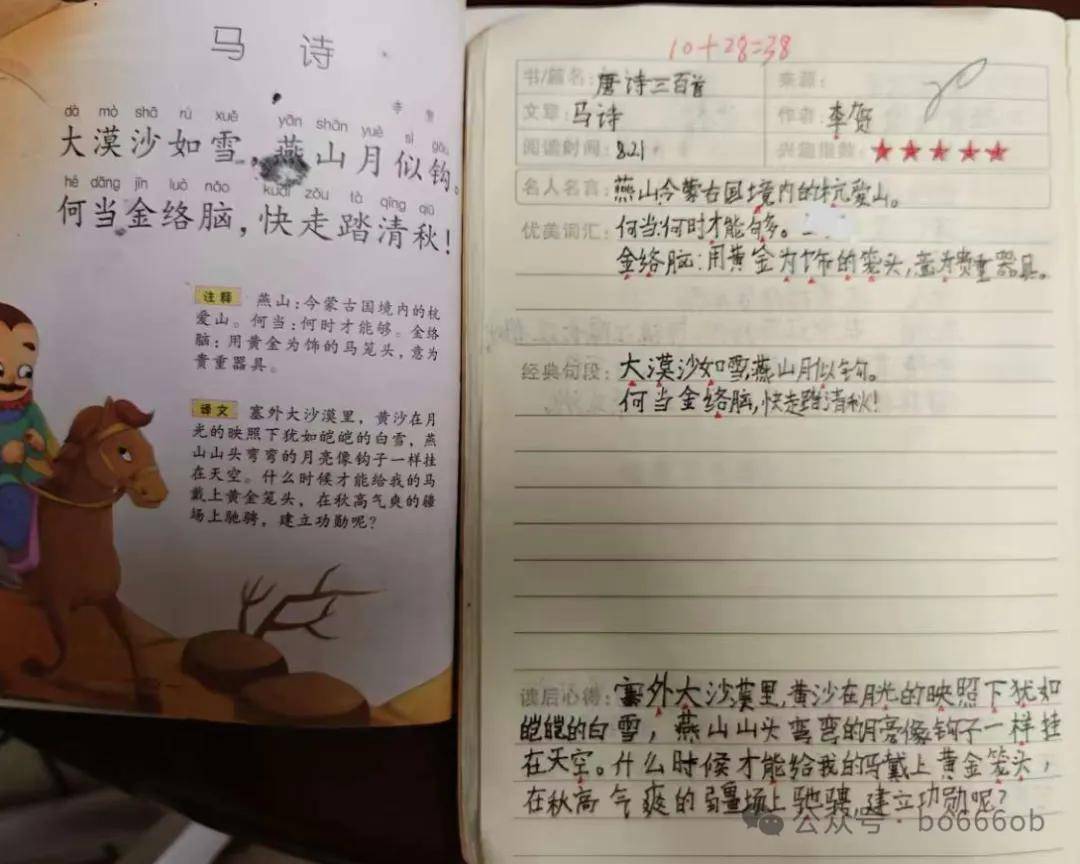 马诗
李贺
dà mò shā rú xuě yān shān yuè sì gōu
大漠沙如雪，燕山月似钩。
hé dāng jīn luò nǎo kuài zǒu tà qīng qiū
何当金络脑，快走踏清秋！
注释 燕山：今蒙古国境内的杭
爱山。何当：何时才能够。金络
脑：用黄金为饰的马笼头，意为
贵重器具。
译文 塞外大沙漠里，黄沙在月
光的映照下犹如皑皑的白雪，燕
山山头弯弯的月亮像钩子一样挂
在天空。什么时候才能给我的马
戴上黄金笼头，在秋高气爽的疆
场上驰骋，建立功勋呢？
10+28=38
书/篇名：唐诗三百首 来源：
文章：马诗 作者：李贺
阅读时间：8.21 兴趣指数：★★★★★
名人名言：燕山今蒙古国境内的杭爱山。
优美词汇：何当：何时才能够。
金络脑：用黄金为饰的笼头，意为贵重器具。
经典句段：大漠沙如雪，燕山月似钩。
何当金络脑，快走踏清秋！
读后心得：塞外大沙漠里，黄沙在月光的映照下犹如
皑皑的白雪，燕山山头弯弯的月亮像钩子一样挂
在天空。什么时候才能给我的马戴上黄金笼头，
在秋高气爽的疆场上驰骋，建立功勋呢？
公众号 · bo666ob